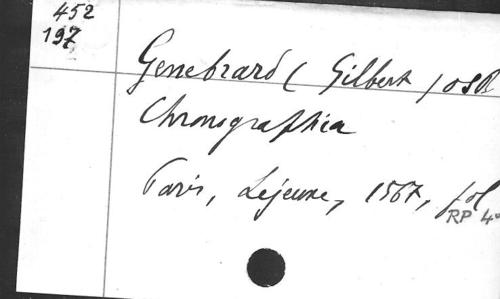 452
197
Genebrard (Gilbert) OSB
Chronographia
Paris, Lejeune, 1567, fol
RP 4°